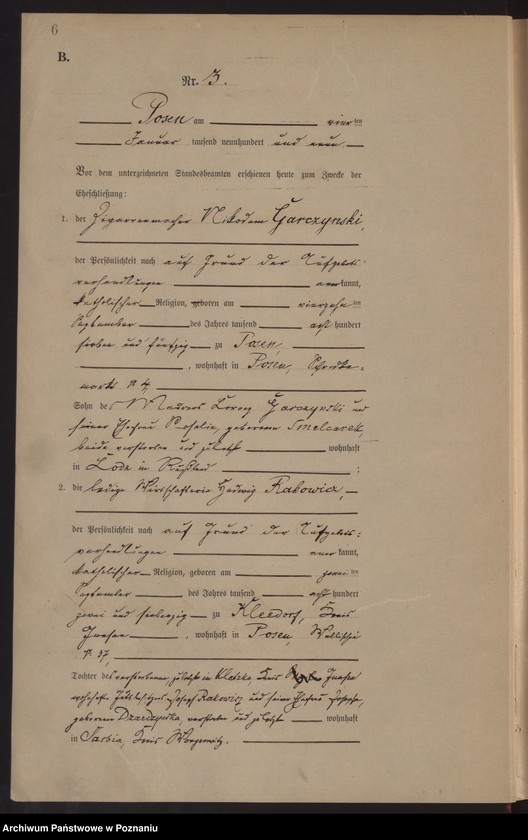 6
B.
Nr. 3.
Posen am vierten
Januar tausend neunhundert und neun.
Vor dem unterzeichneten Standesbeamten erschienen heute zum Zwecke der
Eheschließung:
1. der Zigarrenmacher Nikodem Garczynski,
der Persönlichkeit nach auf Grund der Aufgebots-
verhandlungen anerkannt,
katholischer Religion, geboren am vierzehnten
September des Jahres tausend achthundert
sieben und fünfzig zu Posen
, wohnhaft in Posen,
markt N 4,
Sohn des Maurers Lorenz Garczynski und
seiner Ehefrau Rosalie, geborenen Smelcarek,
beide verstorben und zuletzt wohnhaft
in Lodz in Rußland ;
2. die ledige Wirtschafterin Hedwig Rakowicz,
der Persönlichkeit nach auf Grund der Aufgebots-
verhandlungen anerkannt,
katholischer Religion, geboren am zweiten
September des Jahres tausend achthundert
zwei und siebenzig zu Kleedorf, Kreis
, wohnhaft in Posen, Wallischei
N 37,
Tochter des verstorbenen, zuletzt in Kletzko, Kreis
wohnhaften Joseph Rakowicz und seiner Ehefrau
geborenen verstorben und zuletzt wohnhaft
in Sarbia, Kreis Wongrowitz.
Archiwum Państwowe w Poznaniu